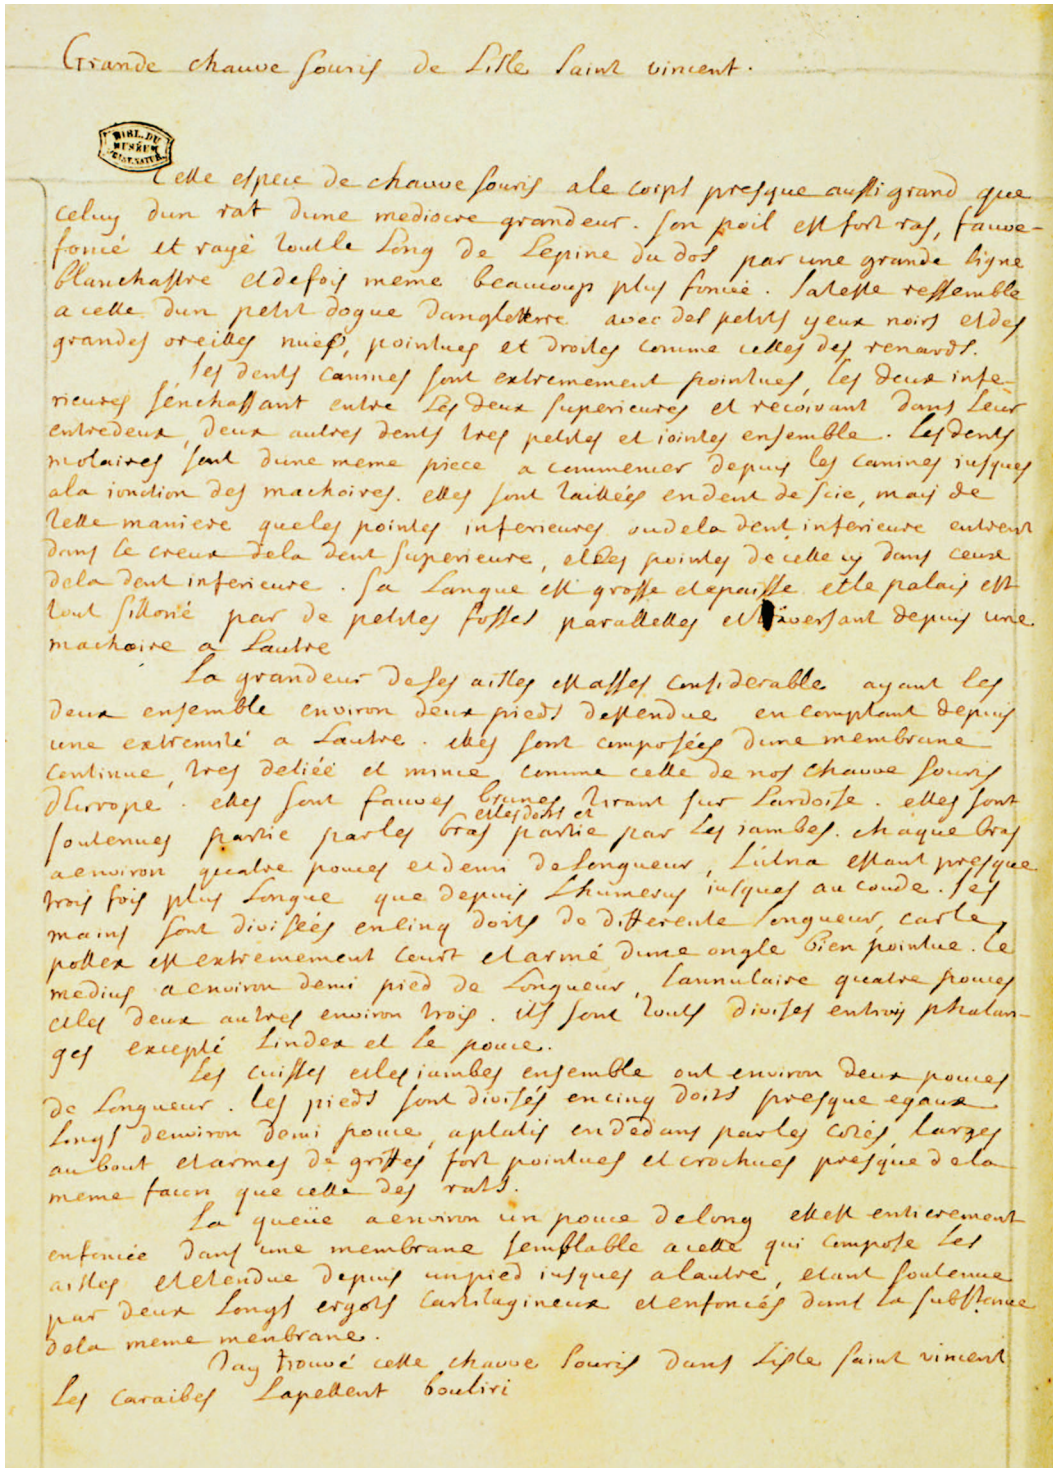 Grande chauve souris de Lisle saint vincent.
BIBL. DU
MUSÉUM
D'HIST. NATUR.
Cette espece de chauve souris a le corps presque aussi grand que
celuy dun rat dune mediocre grandeur. son poil est fort ras, fauve-
foncé et rayé tout le Long de Lepine du dos par une grande ligne
blanchastre et defois meme beaucoup plus foncée. sa teste ressemble
a celle dun petit dogue dangleterre avec des petits yeux noirs et des
grandes oreilles nües, pointues et droites comme celles des renards.
ses dents canines sont extremement pointues, les deux infe-
rieures sénchassant entre Les deux superieures et recoivant dans Leur
entredeux, deux autres dents tres petites et iointes ensemble. Les dents
molaires sont dune meme piece a commencer depuis les canines iusques
a la ionction des machoires. elles sont taillées en dent de scie, mais de
telle maniere que les pointes inferieures ou de la dent inferieure entrent
dans le creux de la dent superieure, et les pointes de celle cy dans ceux
de la dent inferieure. Sa Langue est grosse et epaisse et le palais est
tout silloné par de petites fosses paralleles et traversant depuis une
machoire a Lautre
La grandeur de ses aisles est asses considerable ayant les
deux ensemble environ deux pieds destendue en comptant depuis
une extremité a Lautre. elles sont composées dune membrane
continue, tres deliée et mince comme celle de nos chauve souris
dEurope. elles sont fauves brunes tirant sur Lardoise. elles sont
soutenues partie par les bras et les doits et partie par Les iambes. chaque bras
a environ quatre pouces et demi de Longueur, Lulna estant presque
trois fois plus Longue que depuis Lhumerus iusques au coude. ses
mains sont divisées en cinq doits de differente Longueur, car le
pollex est extremement court et armé dune ongle bien pointue. le
medius a environ demi pied de Longueur, Lannulaire quatre pouces
et les deux autres environ trois. ils sont touts divises en trois phalan-
ges excepté Lindex et Le pouce.
Les cuisses et les iambes ensemble ont environ deux pouces
de Longueur. les pieds sont divisés en cinq doits presque egaux
Longs denviron demi pouce, aplatis en dedans par les cotés, larges
au bout et armes de griffes fort pointues et crochues presque de la
meme facon que celle des rats.
La queüe a environ un pouce de long elle est entierement
enfoncée dans une membrane semblable a celle qui compose Les
aisles et etendue depuis un pied iusques a lautre, etant soutenue
par deux Longs ergots cartilagineux et enfoncés dans La substance
de la meme menbrane.
Jay trouvé cette chauve souris dans Lisle saint vincent
Les caraibes Lapellent bouliri